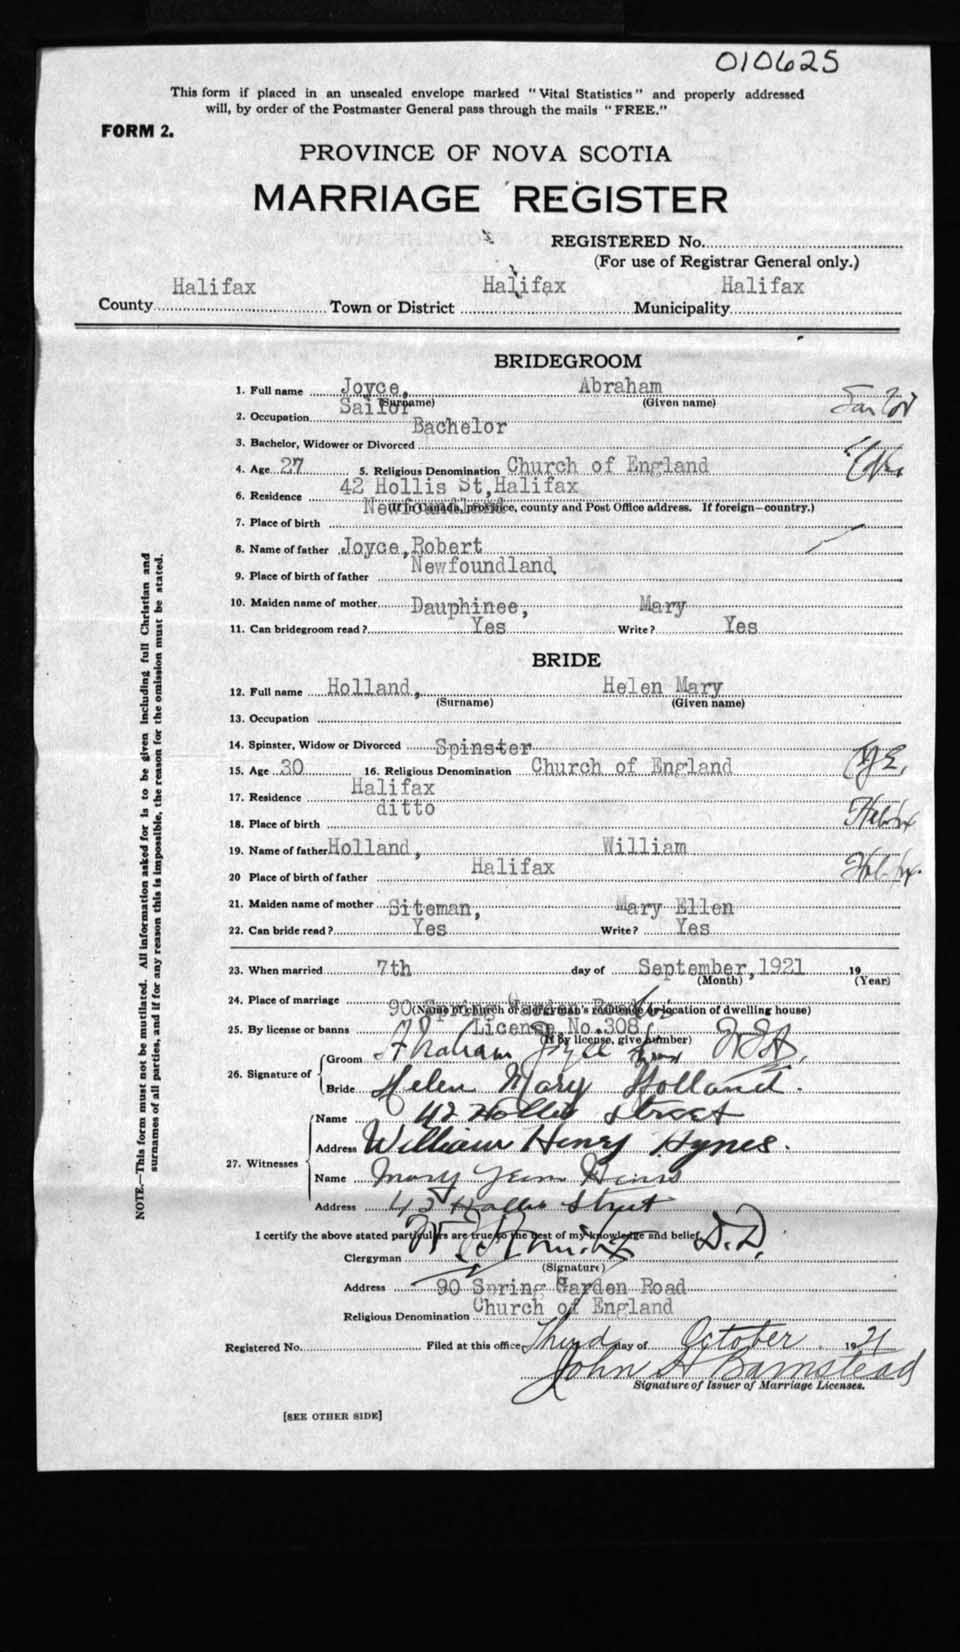 010625
This form if placed in an unsealed envelope marked "Vital Statistics" and properly addressed
will, by order of the Postmaster General pass through the mails "FREE."
FORM 2.
PROVINCE OF NOVA SCOTIA
MARRIAGE REGISTER
REGISTERED No.
(For use of Registrar General only.)
County Halifax Town or District Halifax Municipality Halifax
BRIDEGROOM
1. Full name Joyce, Abraham
(Surname) (Given name)
2. Occupation Sailor
3. Bachelor, Widower or Divorced Bachelor
4. Age 27 5. Religious Denomination Church of England
6. Residence 42 Hollis St, Halifax
(If in Canada, province, county and Post Office address. If foreign—country.)
7. Place of birth Newfoundland
8. Name of father Joyce, Robert
9. Place of birth of father Newfoundland
10. Maiden name of mother Dauphinee, Mary
11. Can bridegroom read? Yes Write? Yes
BRIDE
12. Full name Holland, Helen Mary
(Surname) (Given name)
13. Occupation
14. Spinster, Widow or Divorced Spinster
15. Age 30 16. Religious Denomination Church of England
17. Residence Halifax
18. Place of birth ditto
19. Name of father Holland, William
20 Place of birth of father Halifax
21. Maiden name of mother Siteman, Mary Ellen
22. Can bride read? Yes Write? Yes
23. When married 7th day of September, 1921 19
(Month) (Year)
24. Place of marriage 90 Spring Garden Road
(Name of church or clergyman's residence or location of dwelling house)
25. By license or banns License No. 308
(If by license, give number)
26. Signature of Groom Abraham Joyce
Bride Helen Mary Holland.
27. Witnesses Name 42 Hollis Street
Address William Henry Hynes.
Name Mary Jean
Address 42 Hollis Street
I certify the above stated particulars are true to the best of my knowledge and belief.
Clergyman D.D.
(Signature)
Address 90 Spring Garden Road
Religious Denomination Church of England
Registered No. Filed at this office Third day of October 1921
John H Barnstead
Signature of Issuer of Marriage Licenses.
[SEE OTHER SIDE]
NOTE.—This form must not be mutilated. All information asked for is to be given including full Christian and
surnames of all parties, and if for any reason this is impossible, the reason for the omission must be stated.